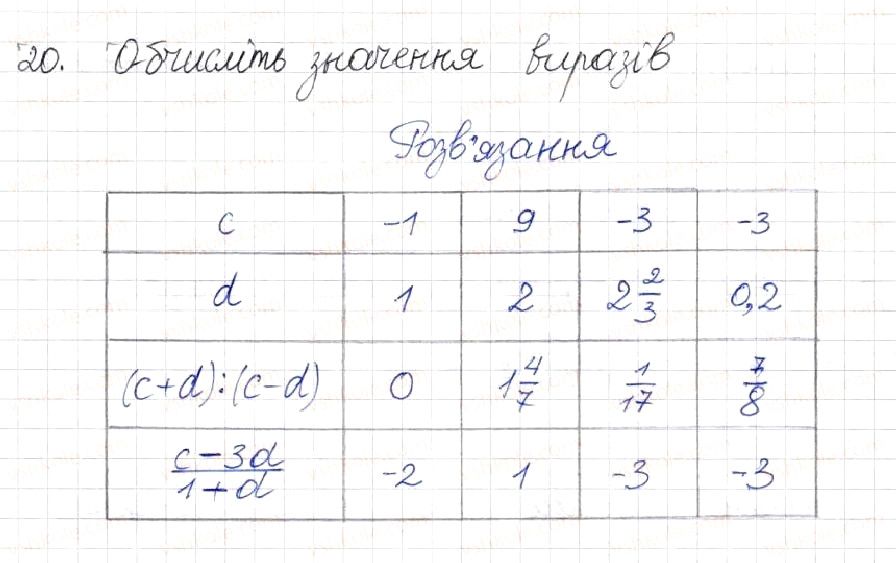 20. Обчисліть значення виразів
Розв'язання
c -1 9 -3 -3
d 1 2 2 2/3 0,2
(c+d):(c-d) 0 1 4/7 1/17 7/8
c-3d/1+d -2 1 -3 -3